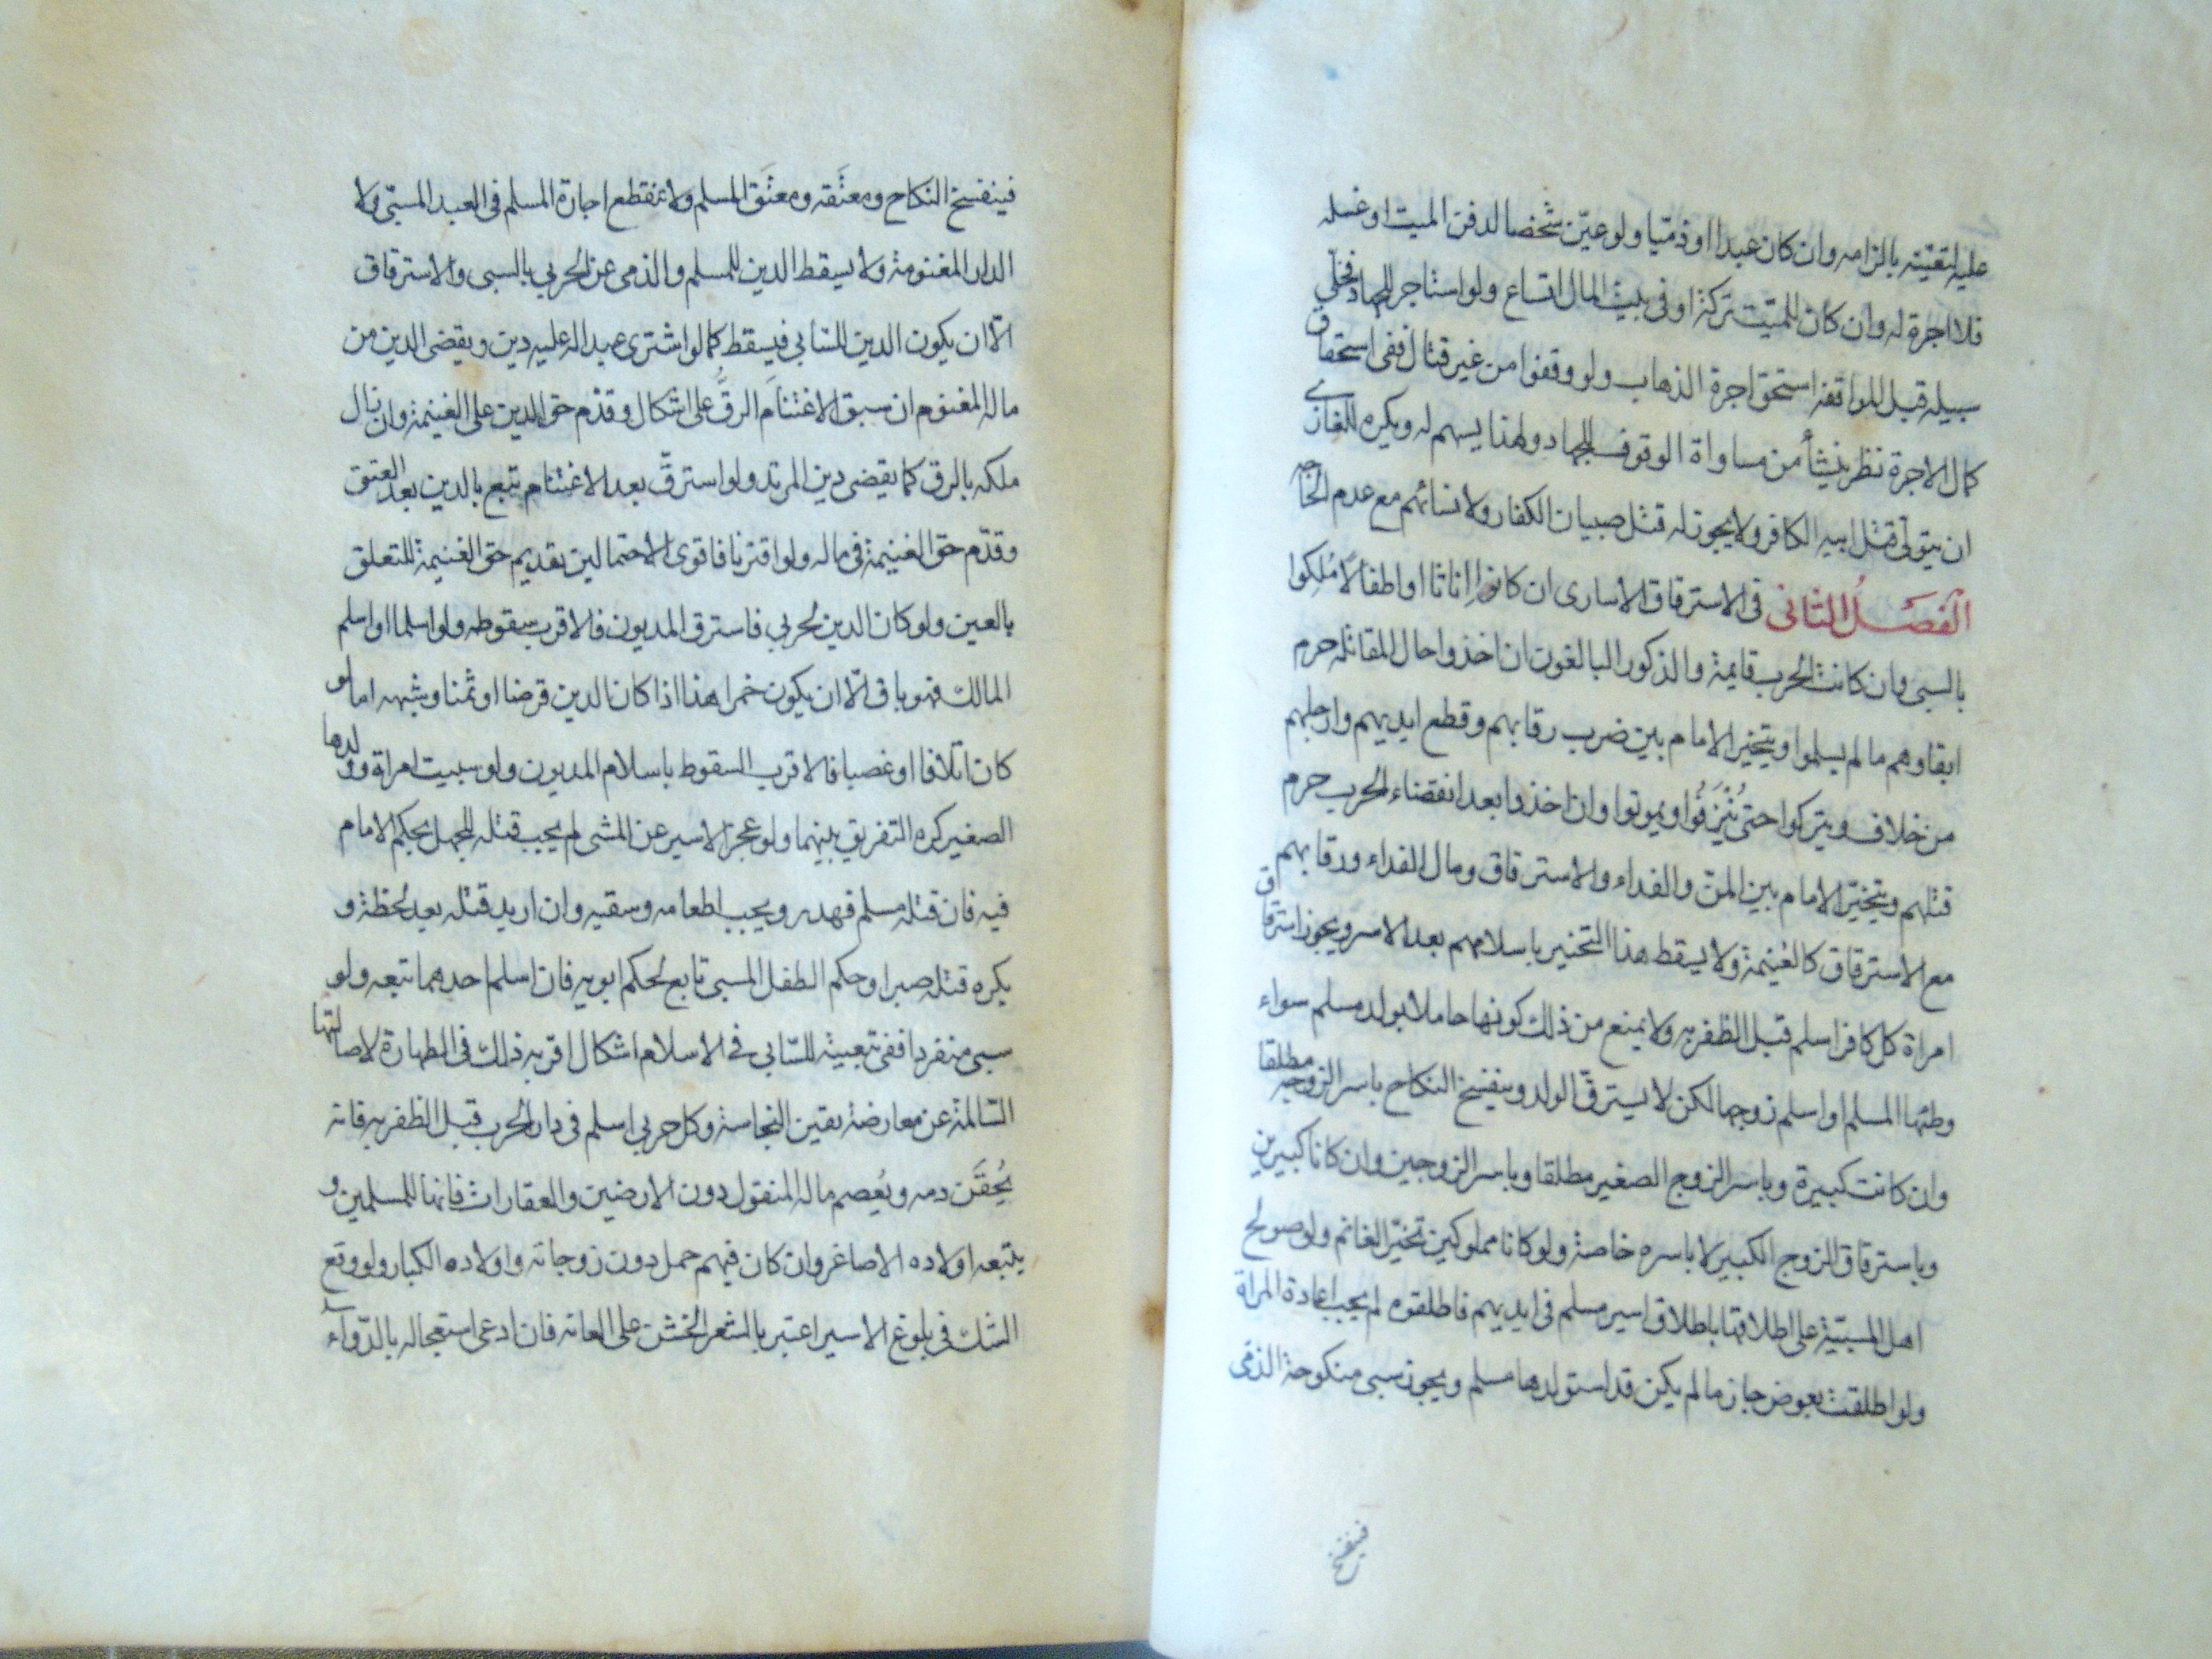 عليه لتعيّنه بالزامه وان كان عبدا او ذمّيا ولو عيّن شخصا لدفن الميت او غسله
فلا اجرة له وان كان للميّت تركة او فى بيت المال اتساع ولو استاجر للجهاد فخلّي
سبيله قبل المواقفه استحق اجرة الذهاب ولو وقفوا من غير قتال ففى استحقاق
كمال الاجرة نظر ينشأ من مساواة الوقوف للجهاد ولهذا يسهم له ويكره للغازي
ان يتولّى قتل ابيه الكافر ولا يجوز له قتل صبيان الكفار ولا نسائهم مع عدم الحاجه
الفصل الثانى فى الاسترقاق الاسارى ان كانوا اناثا او اطفالا مُلِكوا
بالسبى وان كانت الحرب قايمة والذكور البالغون ان اخذوا حال المقاتله حرم
ابقاوهم ما لم يسلموا ويتخير الامام بين ضرب رقابهم وقطع ايديهم وارجلهم
من خلاف ويتركوا حتى يُنْزَفُوا ويموتوا وان اخذوا بعد انقضاء الحرب حرم
قتلهم ويتخيّر الامام بين المنّ والفداء والاسترقاق ومال الفداء ورقابهم
مع الاسترقاق كالغنيمة ولا يسقط هذا التخيير باسلامهم بعد الاسر ويجوز استرقاق
امراة كل كافر اسلم قبل الظفر به ولا يمنع من ذلك كونها حاملا بولد مسلم سواء
وطئها المسلم او اسلم زوجها لكن لا يسترقّ الولد وينفسخ النكاح باسر الزوجه مطلقا
وان كانت كبيرة وباسر الزوج الصغير مطلقا وباسر الزوجين وان كانا كبيرين
وباسترقاق الزوج الكبير لا باسره خاصة ولو كانا مملوكين تخيّر الغانم ولو صولح
اهل المسبيّة على اطلاقها باطلاق اسير مسلم فى ايديهم فاطلقوه لم يجب اعادة المراة
ولو اطلقت بعوض جاز ما لم يكن قد استولدها مسلم ويجوز سبى منكوحة الذمى
فينفسخ
فينفسخ النكاح ومعتَقه ومعتَق المسلم ولا تنقطع اجارة المسلم فى العبد المسبىّ ولا
الدار المغنومة ولا يسقط الدين للمسلم والذمى عن الحربي بالسبى والاسترقاق
الّا ان يكون الدين للسّابي فيسقط كما لو اشترى عبدا له عليه دين ويقضى الدين من
ماله المغنوم ان سبق الاغتنامَ الرقُّ على اشكال وقدّم حق الدين على الغنيمة وان زال
ملكه بالرق كما يقضى دين المرتد ولو استرقّ بعد الاغتنام يتبع بالدين بعد العتق
وقدّم حق الغنيمة فى ماله ولو اقترنا فاقوى الاحتمالين تقديم حق الغنيمة للتعلق
بالعين ولو كان الدين لحربي فاسترق المديون فالاقرب سقوطه ولو اسلما او اسلم
المالك فهو باق الّا ان يكون خمرا هذا اذا كان الدين قرضا او ثمنا وشبهه اما لو
كان اتلافا او غصبا فالاقرب السقوط باسلام المديون ولو سبيت امراة وولدها
الصغير كره التفريق بينهما ولو عجز الاسير عن المشى لم يجب قتله للجهل بحكم الامام
فيه فان قتله مسلم فهدر ويجب اطعامه وسقيه وان اريد قتله بعد لحظة و
يكره قتله صبرا وحكم الطفل المسبى تابع لحكم ابويه فان اسلم احدهما تبعه ولو
سبى منفردا ففى تبعيته للسّابي في الاسلام اشكال اقربه ذلك فى الطهارة لاصالتها
السّالمة عن معارضة يقين النجاسة وكل حربي اسلم فى دار الحرب قبل الظفر به فانه
يُحقَن دمه ويُعصم ماله المنقول دون الارضين والعقارات فانها للمسلمين و
يلتبعه اولاده الاصاغر وان كان فيهم حمل دون زوجاته واولاده الكبار ولو وقع
الشك فى بلوغ الاسير اعتبر بالشعر الخشن على العانه فان ادعى استعجاله بالدّواء